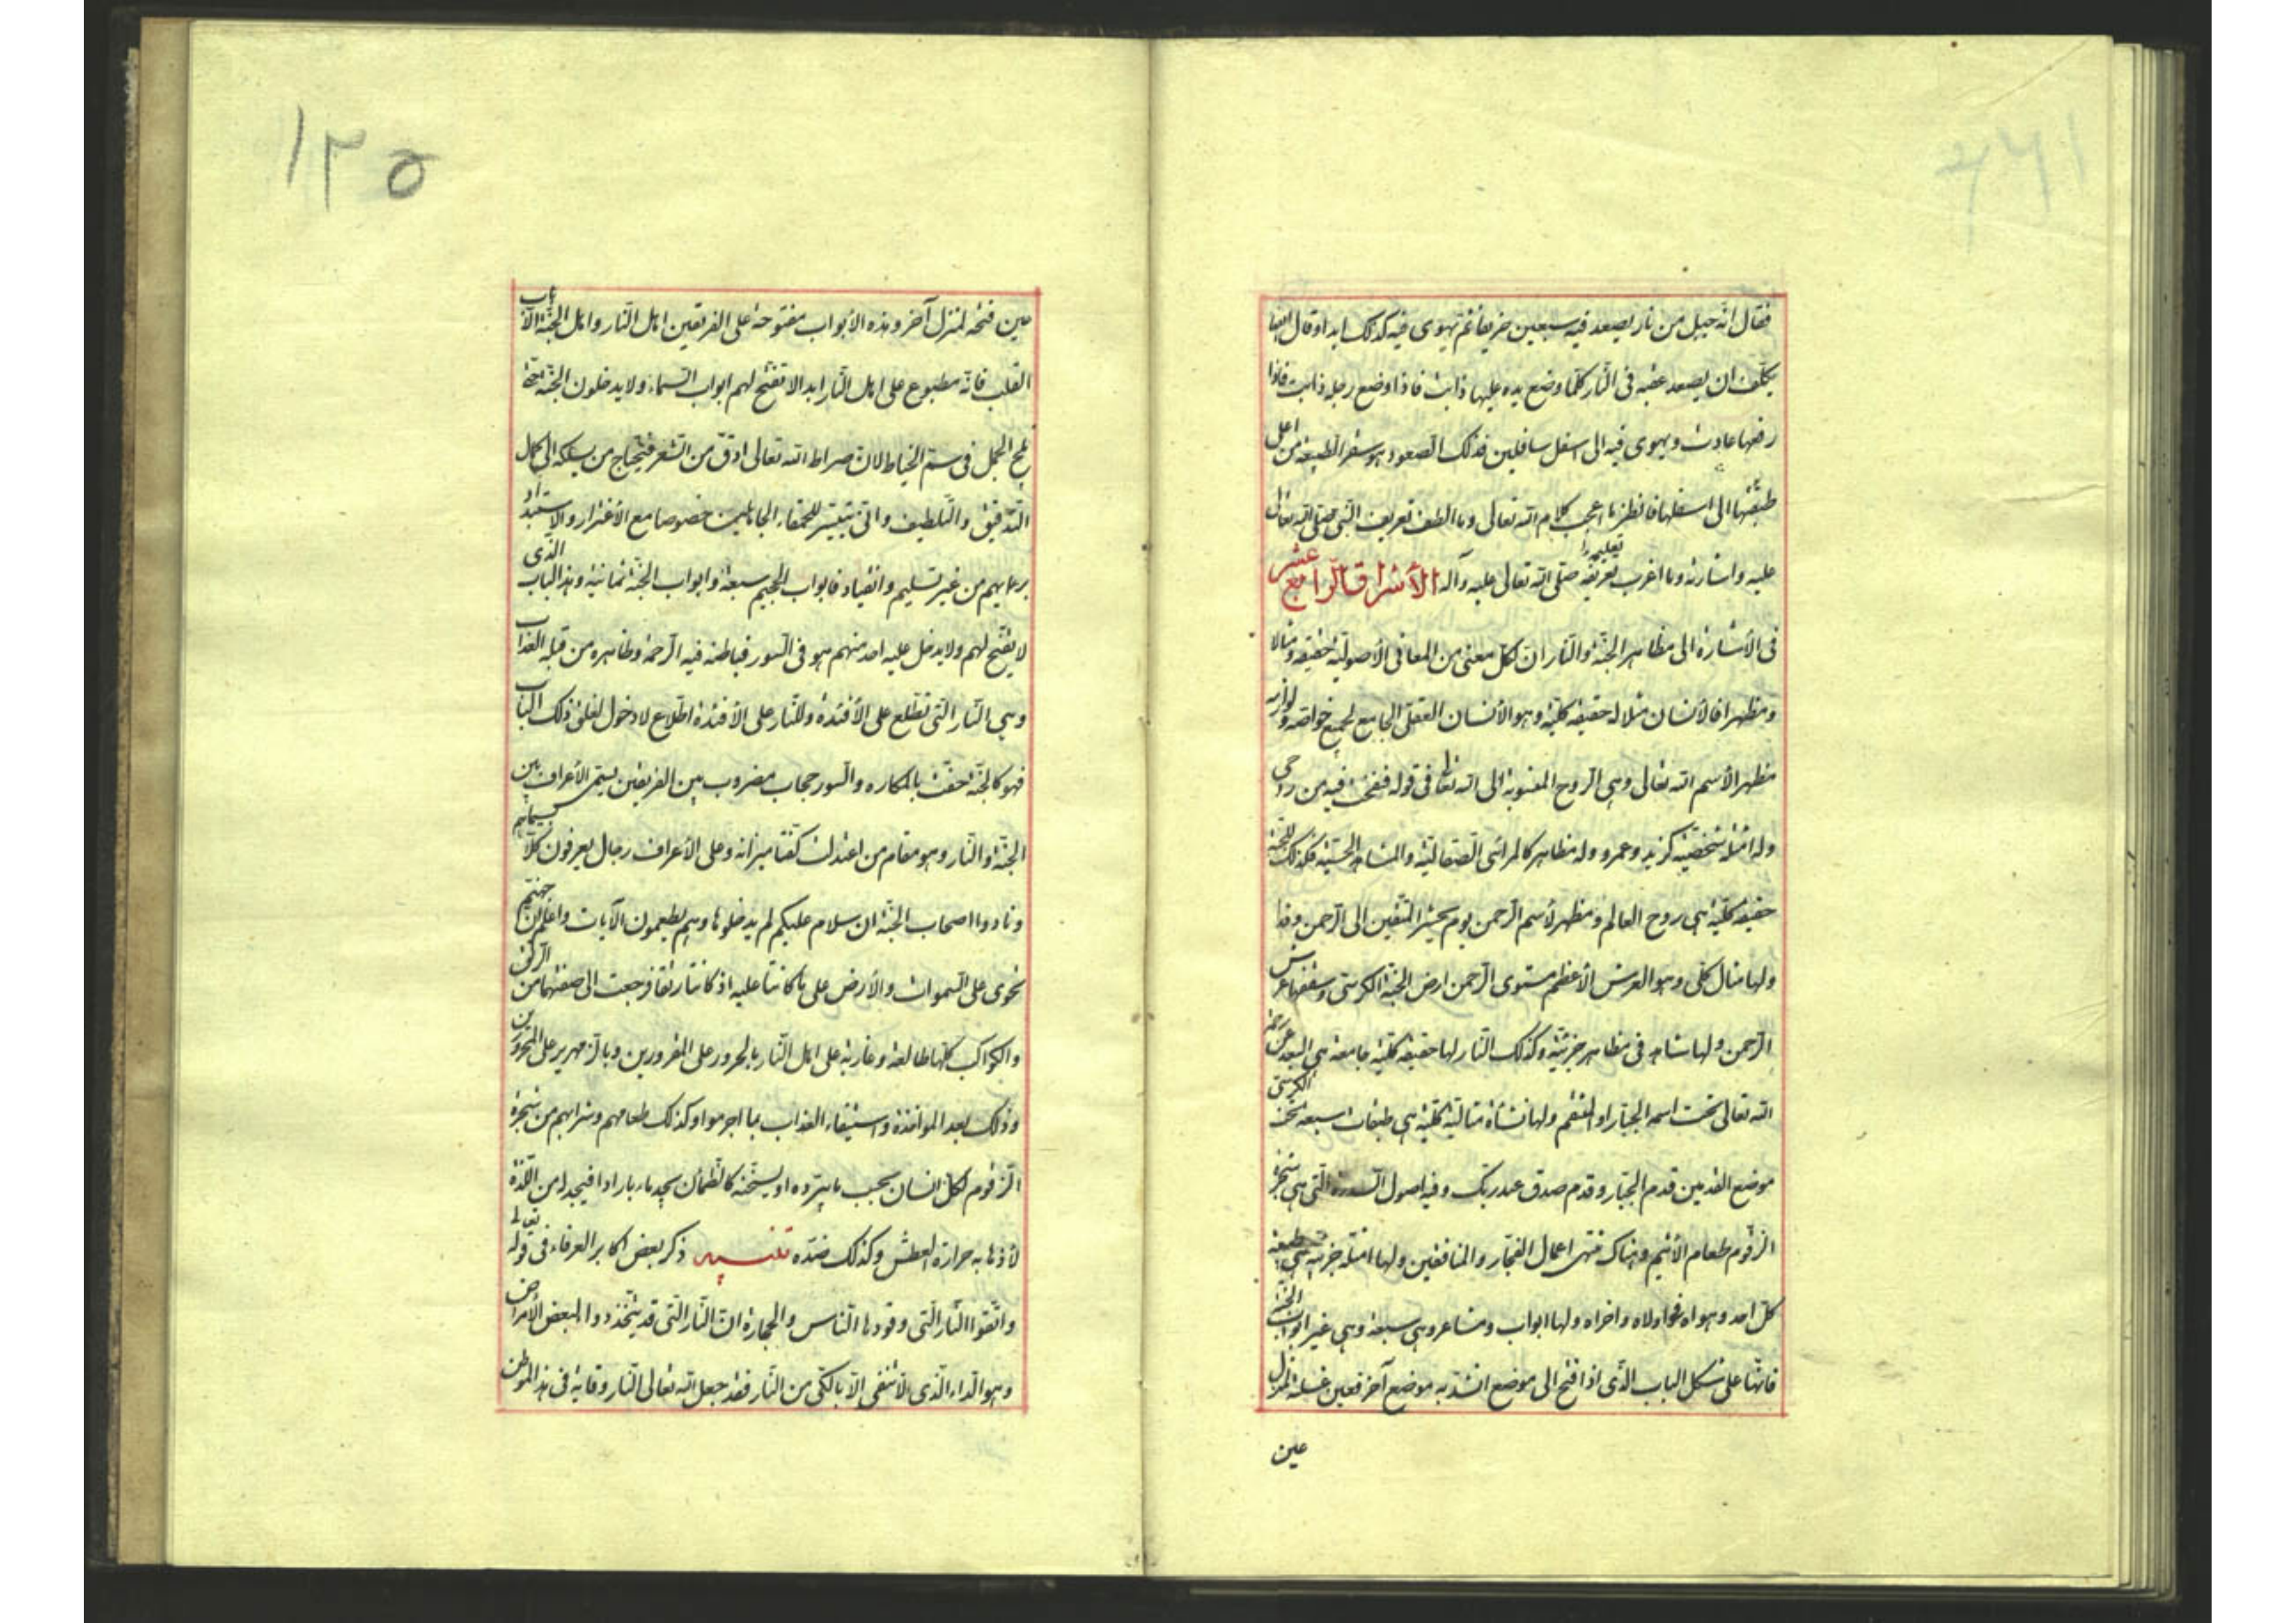 فقال انه جبل من نار يصعد فيه سبعين خريفا ثم يهوى فيه كذلك ابدا وقال ايضا
يكلف ان يصعد عقبه فى النار كلما وضع يده عليها ذابت فاذا وضع رجله ذابت فاذا
رفعها عادت ويهوى فيه الى اسفل سافلين فذلك الصعود هو سفر الطبيعه من اعلى
طبقتها الى اسفلها فانظر ما اعجب كلام الله تعالى وما الطف تعريف النبى صلى الله تعالى
عليه واشارته وما اغرب تعليمه صلى الله تعالى عليه وآله الأشراق الرابع عشر
فى الأشارة الى مظاهر الجنة والنار ان لكل معنى من المعانى الأصولية حقيقة ومثالا
ومظهرا فالأنسان مثلا له حقيقة كلية وهو الأنسان العقلى الجامع لجميع خواصه ولوازمه
مظهر الأسم الله تعالى وهى الروح المنسوبة الى الله تعا فى قوله فنفخت فيه من روحى
وله امثلة شخصية كزيد وعمرو وله مظاهر كالمرائى الصقالية والمشاهد الحسية فكذلك للجنة
حقيقه كلية هى روح العالم ومظهر لأسم الرحمن يوم يحشر المتقين الى الرحمن وفدا
ولها مثال كلى وهو العرش الأعظم مستوى الرحمن ارض الجنة الكرسى وسقفها عرش
الرحمن ولها مشاهد فى مظاهر جزئية وكذلك النار لها حقيقة كلية جامعة هى البعد عن رحمة
الله تعالى تحت اسمه الجبار او المنتقم ولها نشأة مثالية كلية هى طبقات سبعه تحت الكرسى
موضع القدمين قدم الجبار وقدم صدق عند ربك وفيه اصول السدرة التى هى شجرة
الزقوم طعام الأثيم وهناك منتهى اعمال الفجار والمنافقين ولها امثلة جزئيه هى طبيعة
كل احد وهواه فى اولاه واخراه ولها ابواب ومشاعر وهى سبعة وهى غير ابواب الجنة
فانها على شكل الباب الذى اذا فتح الى موضع انسد به موضع آخر فعين غلقه لمنزل
عين
١٢٥
عين فتحه لمنزل آخر وهذه الأبواب مفتوحة على الفريقين اهل النار واهل الجنة الا باب
القلب فانه مطبوع على اهل النار ابدا لا تفتح لهم ابواب السماء ولا يدخلون الجنة حتى
يلج الجمل فى سم الخياط لان صراط الله تعالى ادق من الشعر فيحتاج من يسلكه الى كمال
التدقيق والتلطيف وانى يتيسر للحمقاء الجاهلين خصوصا مع الأغترار والاستبداد
برأيهم من غير تسليم وانقياد فابواب الجحيم سبعة وابواب الجنة ثمانية وهذا الباب الذى
لا يفتح لهم ولا يدخل عليه احد منهم هو فى السور فباطنه فيه الرحمة وظاهره من قبله العذاب
وهى النار التى تطلع على الأفئدة وللنار على الافئدة اطلاع لا دخول لغلق ذلك الباب
فهو كالجنة حفت بالمكاره والسور حجاب مضروب بين الفريقين يسمى الأعراف بين
الجنة والنار وهو مقام من اعتدلت كفتا ميزانه وعلى الأعراف رجال يعرفون كلا بسيماهم
ونادوا اصحاب الجنة ان سلام عليكم لم يدخلوها وهم يطمعون الآيات واعلم ان جهنم
تحوى على السموات والأرض على ما كانتا عليه اذ كانتا رتقا فرجعت الى صفتهما من الرتق
والكواكب كلها طالعة وغاربة على اهل النار بالحرور على المقرورين وبالزمهرير على المحرورين
وذلك بعد المواخذة واستيفاء العذاب بما اجرموا وكذلك طعامهم وشرابهم من شجرة
الزقوم لكل انسان بحسب ما يبرده او يسخنه كالظمآن يجد ماء باردا فيجد له من اللذة
لأذهابه حرارة العطش وكذلك ضده تنبيه ذكر بعض اكابر العرفاء فى قوله تعالى
واتقوا النار التى وقودها الناس والحجارة ان النار التى قد يتخذ دواء لبعض الأمراض
وهو الداء الذى لا تنقى الا بالكى من النار فقد جعل الله تعالى النار وقاية فى هذا الموطن